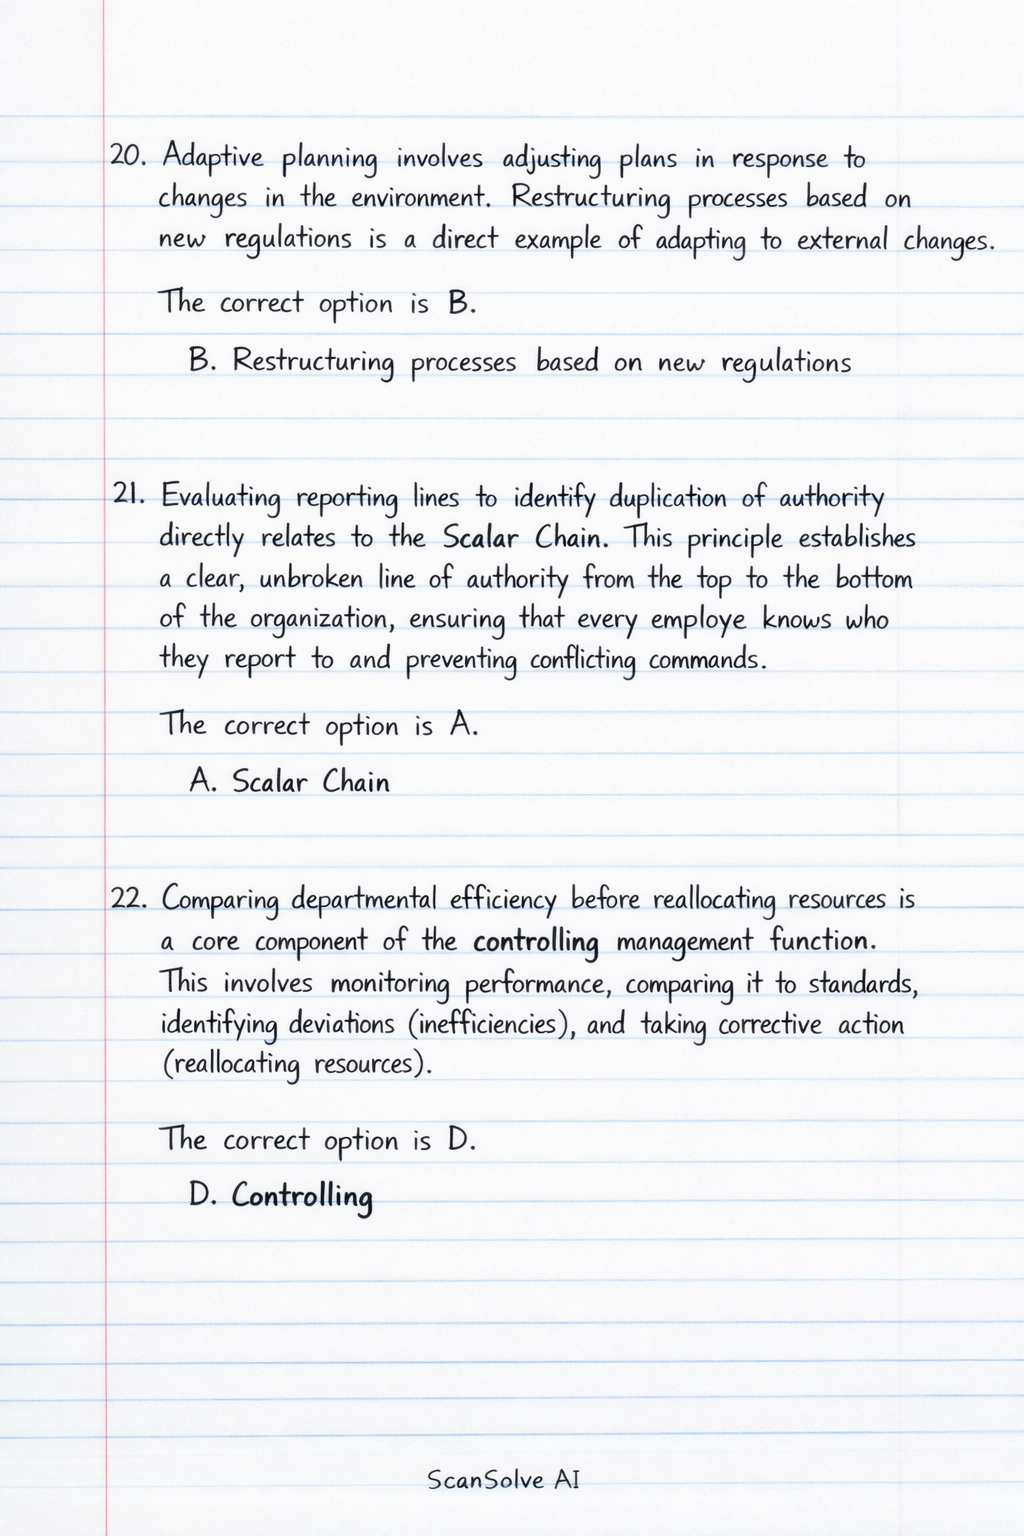 20. Adaptive planning involves adjusting plans in response to
changes in the environment. Restructuring processes based on
new regulations is a direct example of adapting to external changes.
The correct option is B.
B. Restructuring processes based on new regulations
21. Evaluating reporting lines to identify duplication of authority
directly relates to the Scalar Chain. This principle establishes
a clear, unbroken line of authority from the top to the bottom
of the organization, ensuring that every employe knows who
they report to and preventing conflicting commands.
The correct option is A.
A. Scalar Chain
22. Comparing departmental efficiency before reallocating resources is
a core component of the controlling management function.
This involves monitoring performance, comparing it to standards,
identifying deviations (inefficiencies), and taking corrective action
(reallocating resources).
The correct option is D.
D. Controlling
ScanSolve AI